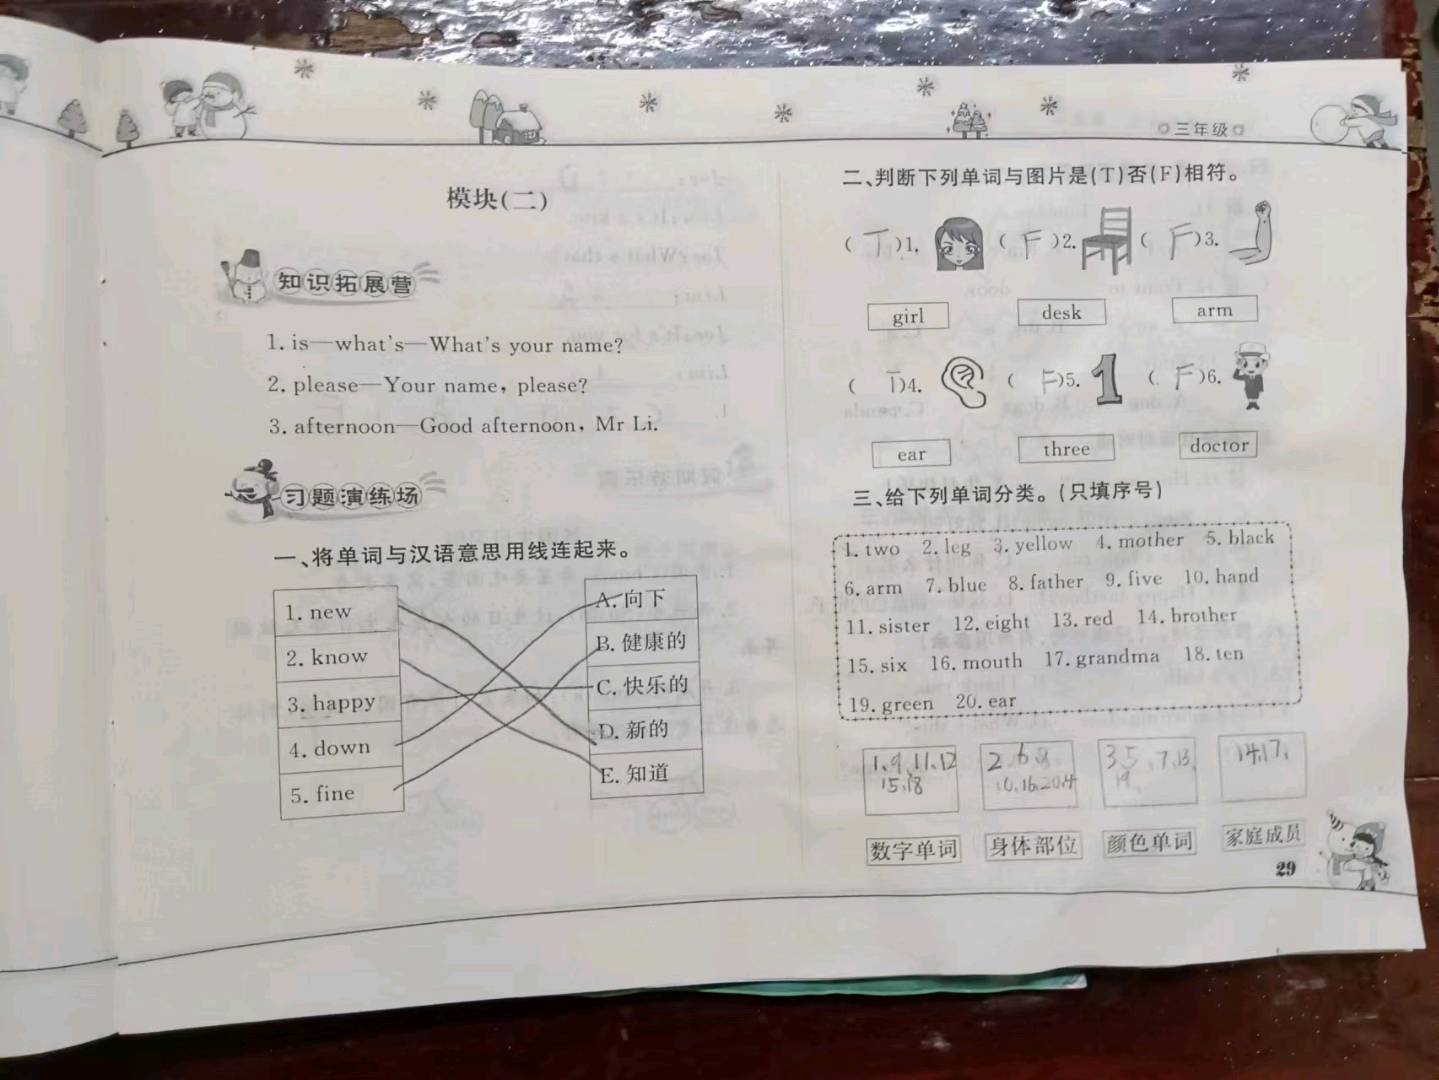 三年级
模块(二)
知识拓展营
1. is—what's—What's your name?
2. please—Your name, please?
3. afternoon—Good afternoon, Mr Li.
习题演练场
一、将单词与汉语意思用线连起来。
1. new
2. know
3. happy
4. down
5. fine
A. 向下
B. 健康的
C. 快乐的
D. 新的
E. 知道
二、判断下列单词与图片是(T)否(F)相符。
( T )1. ( F )2. ( F )3.
girl desk arm
( T )4. ( F )5. 1 ( F )6.
ear three doctor
三、给下列单词分类。(只填序号)
1. two 2. leg 3. yellow 4. mother 5. black
6. arm 7. blue 8. father 9. five 10. hand
11. sister 12. eight 13. red 14. brother
15. six 16. mouth 17. grandma 18. ten
19. green 20. ear
1、9、11、12 2、6、8 3、5、7、13、 14、17、
15、18 10、16、20、4 19、
数字单词 身体部位 颜色单词 家庭成员
29